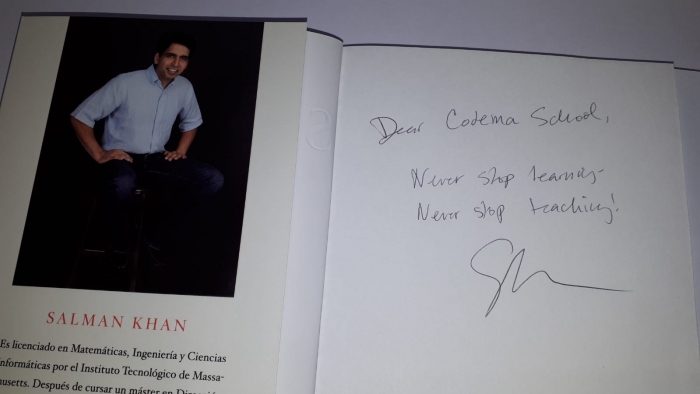 SALMAN KHAN
Es licenciado en Matemáticas, Ingeniería y Ciencias
Informáticas por el Instituto Tecnológico de Massa-
husetts. Después de cursar un máster en
Dear Codema School,
Never stop learning-
Never stop teaching!